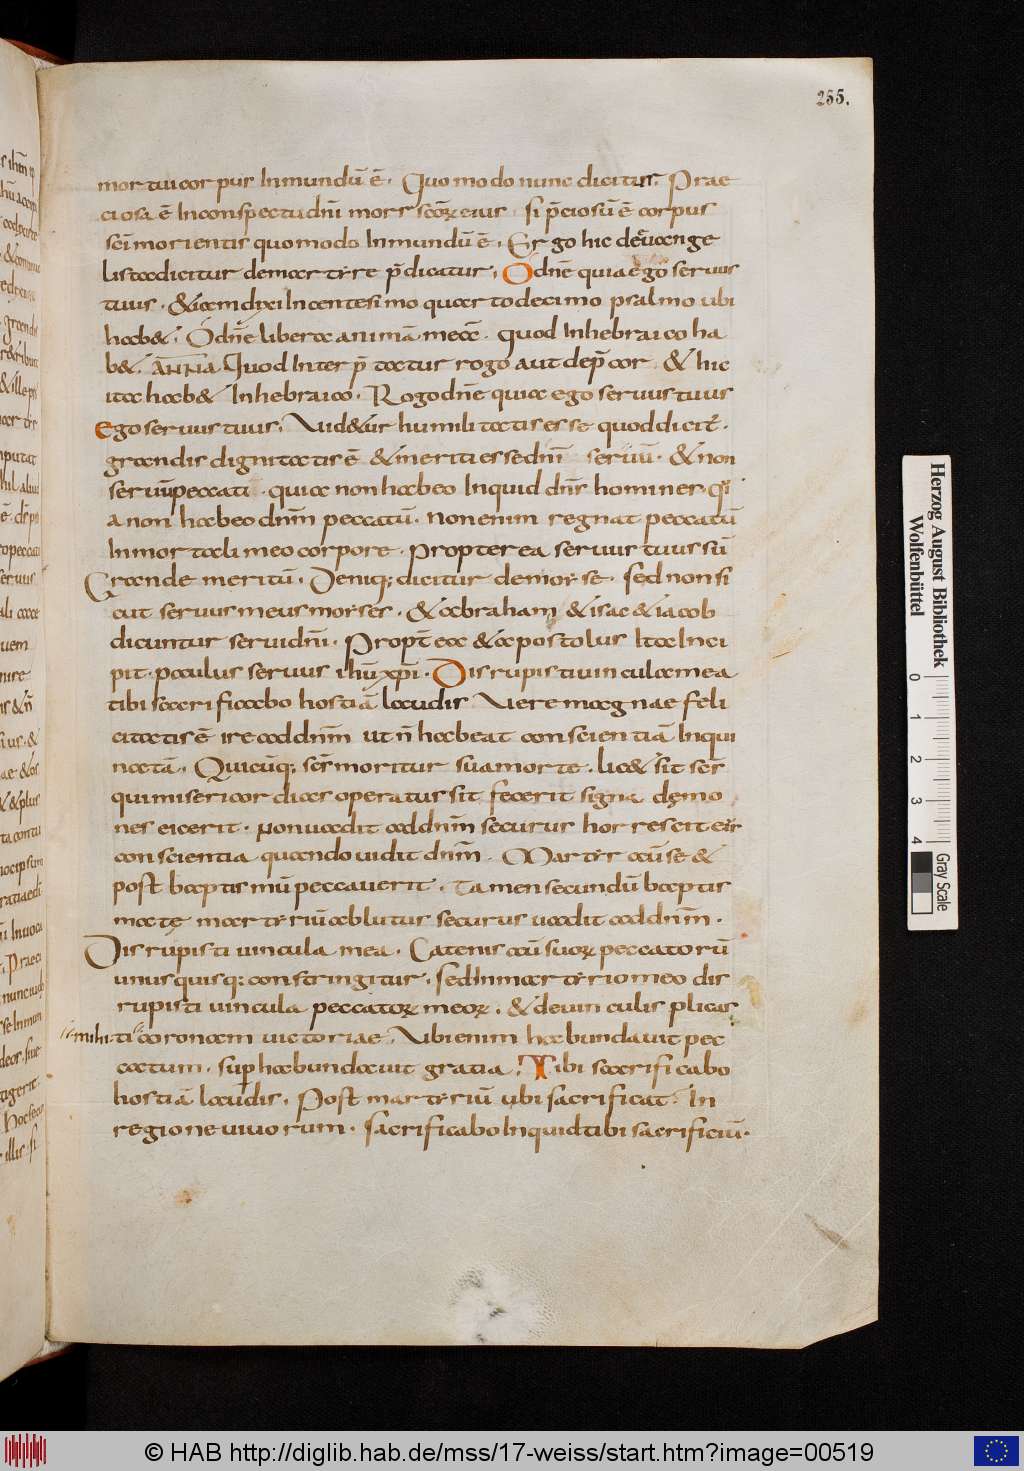 255.
mortui corpus Inmundū ē . Quomodo nunc dicitur. Prae
ciosa ē Inconspectu dnī mors scōꝝ eius si p̄ciosū ē corpus
scī morientis quomodo Inmundū ē . Ergo hic de euange
lista dicitur de martyre p̄dicatur . O dnē quia ego seruus
tuus . & iam dixi Incentesimo quarto decimo psalmo ubi
hab& . O dnē libera animā meā . quod Inhebraico ha
b& . ANNA Quod Interp̄tatur rogo aut dep̄cor & hic
ita hab& Inhebraico . Rogo dnē quia ego seruus tuus
Ego seruus tuus . Uid&ur humilitatis esse quod dicit .
grandis dignitatis ē & meriti esse dnī seruū . & non
seruū peccati . quia non habeo Inquid dnr homines . Qi
a non habeo dnm̄ peccatū . non enim regnat peccatū
Inmortali meo corpore . propterea seruus tuus sū
Grande meritū . Deniq; dicitur de morse . sed non si
cut seruus meus morses . & abraham & isac & iacob
dicuntur serui dnī . Propt̄ea & apostolus Ita Inci
pit . paulus seruus ihū xp̄i . Disrupisti uincula mea
tibi sacrificabo hostiā laudis Uere magnae feli
citatis ē ire ad dnm̄ ut n̄ habeat conscientiā Inqui
natā . Quicūq; ser̄ moritur sua morte . lic& sit ser̄
qui misericordias operatus sit fecerit signa demo
nes eicerit . non uadit ad dnm̄ securus horrescit eir
conscientia quando uidit dnm̄ . Martyr aū se &
post baptismū peccauerit . tamen secundū baptis
mate martyriū ablutus securus uadit ad dnm̄ .
Disrupisti uincula mea . Catenis aū suoꝝ peccatorū
unus quisq; constringitur . sed Inmartyrio meo dis
rupisti uincula peccatoꝝ meoꝝ . & de uinculis plicas
mihi ti coronam uictoriae . Ubi enim habundauit pec
catum . sup habundauit gratia . Tibi sacrificabo
hostiā laudis . Post martyriū ubi sacrificat . In
regione uiuorum . sacrificabo Inquid tibi sacrificiū .
Herzog August Bibliothek
Wolfenbüttel
0 1 2 3 4
Gray Scale
© HAB http://diglib.hab.de/mss/17-weiss/start.htm?image=00519